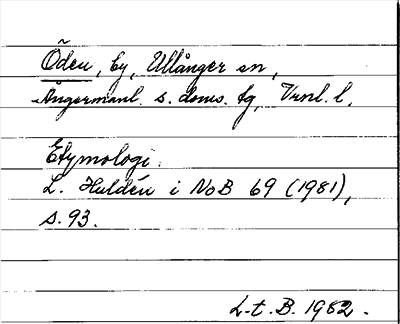 Öden, by, Ullånger sn,
Ångermanl. s. doms. tg, Vrnl. l.
Etymologi:
L. Huldén i NoB 69 (1981),
s. 93.
L-t. B. 1982.